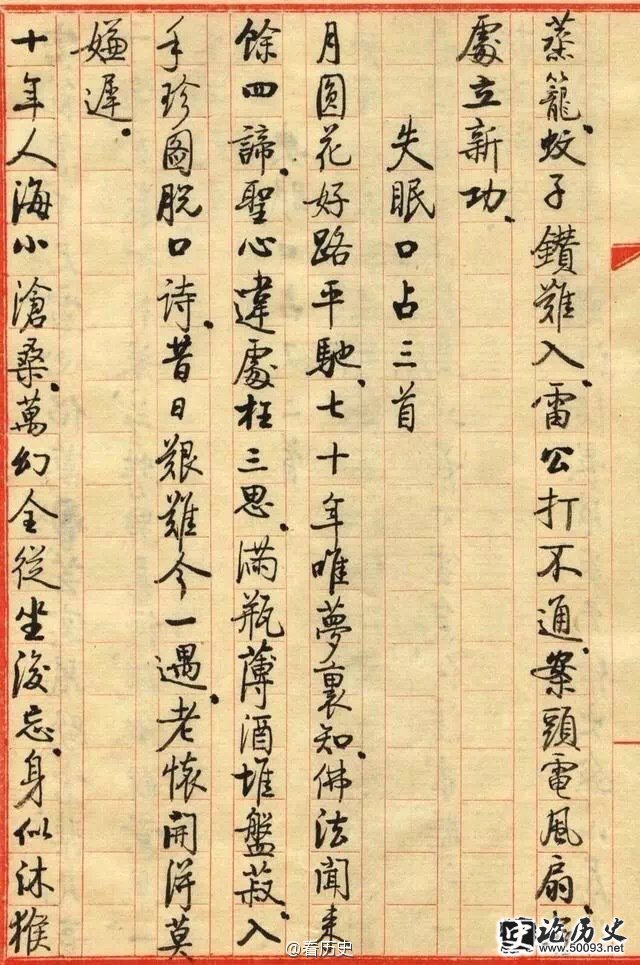 蒸籠。蚊子鑽難入。雷公打不通。案頭電風扇。
處立新功。
失眠口占三首
月圓花好路平馳。七十年唯夢裏知。佛法聞來
餘四諦。聖心違處枉三思。滿瓶薄酒堆盤菽。入
手珍圖脱口詩。昔日艱難今一遇。老懷開得莫
嫌遲。
十年人海小滄桑。萬幻全從坐後忘。身似沐猴
@看历史
论历史
www.50093.net